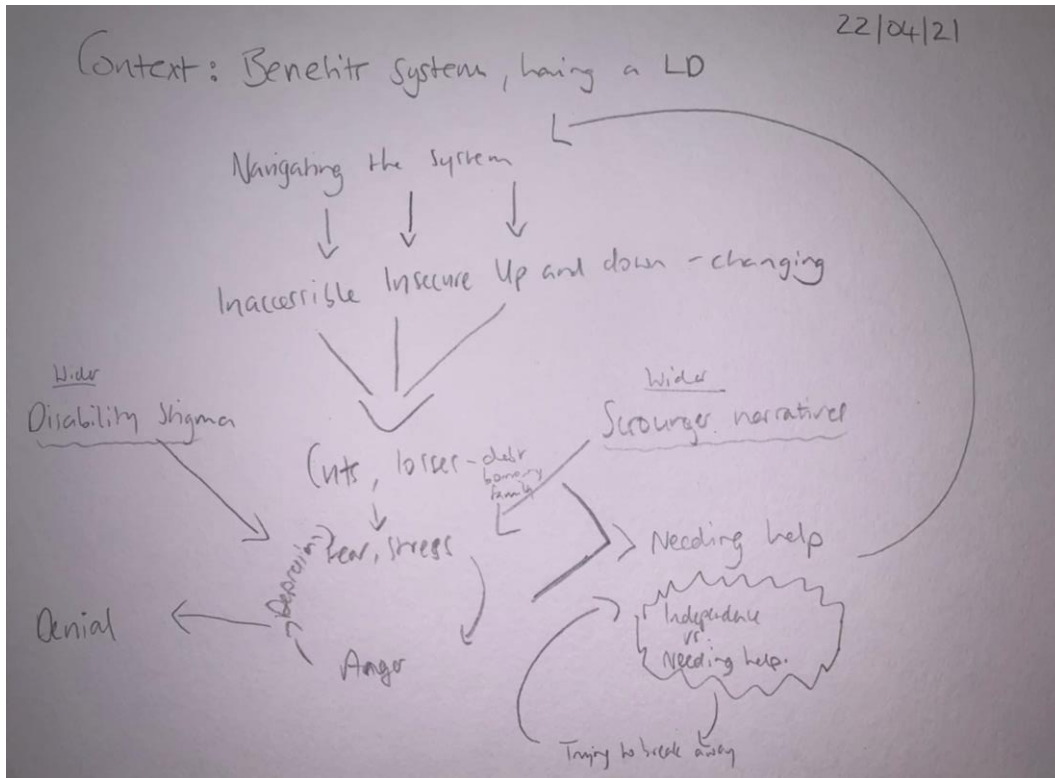 22/04/21
Context: Benefits system, having a LD
Navigating the system
Inaccessible Insecure Up and down - changing
Wider
Disability stigma
Wider
Scrounger narratives
Cuts, losses - debt
borrowing
family
Fear, stress
Depression
Anger
Denial
Needing help
Independence
vs.
Needing help.
Trying to break away